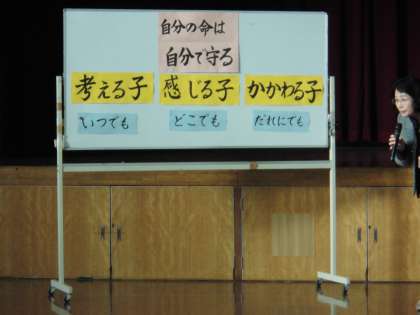 自分の命は
自分で守る
考える子 感じる子 かかわる子
いつでも どこでも だれにでも